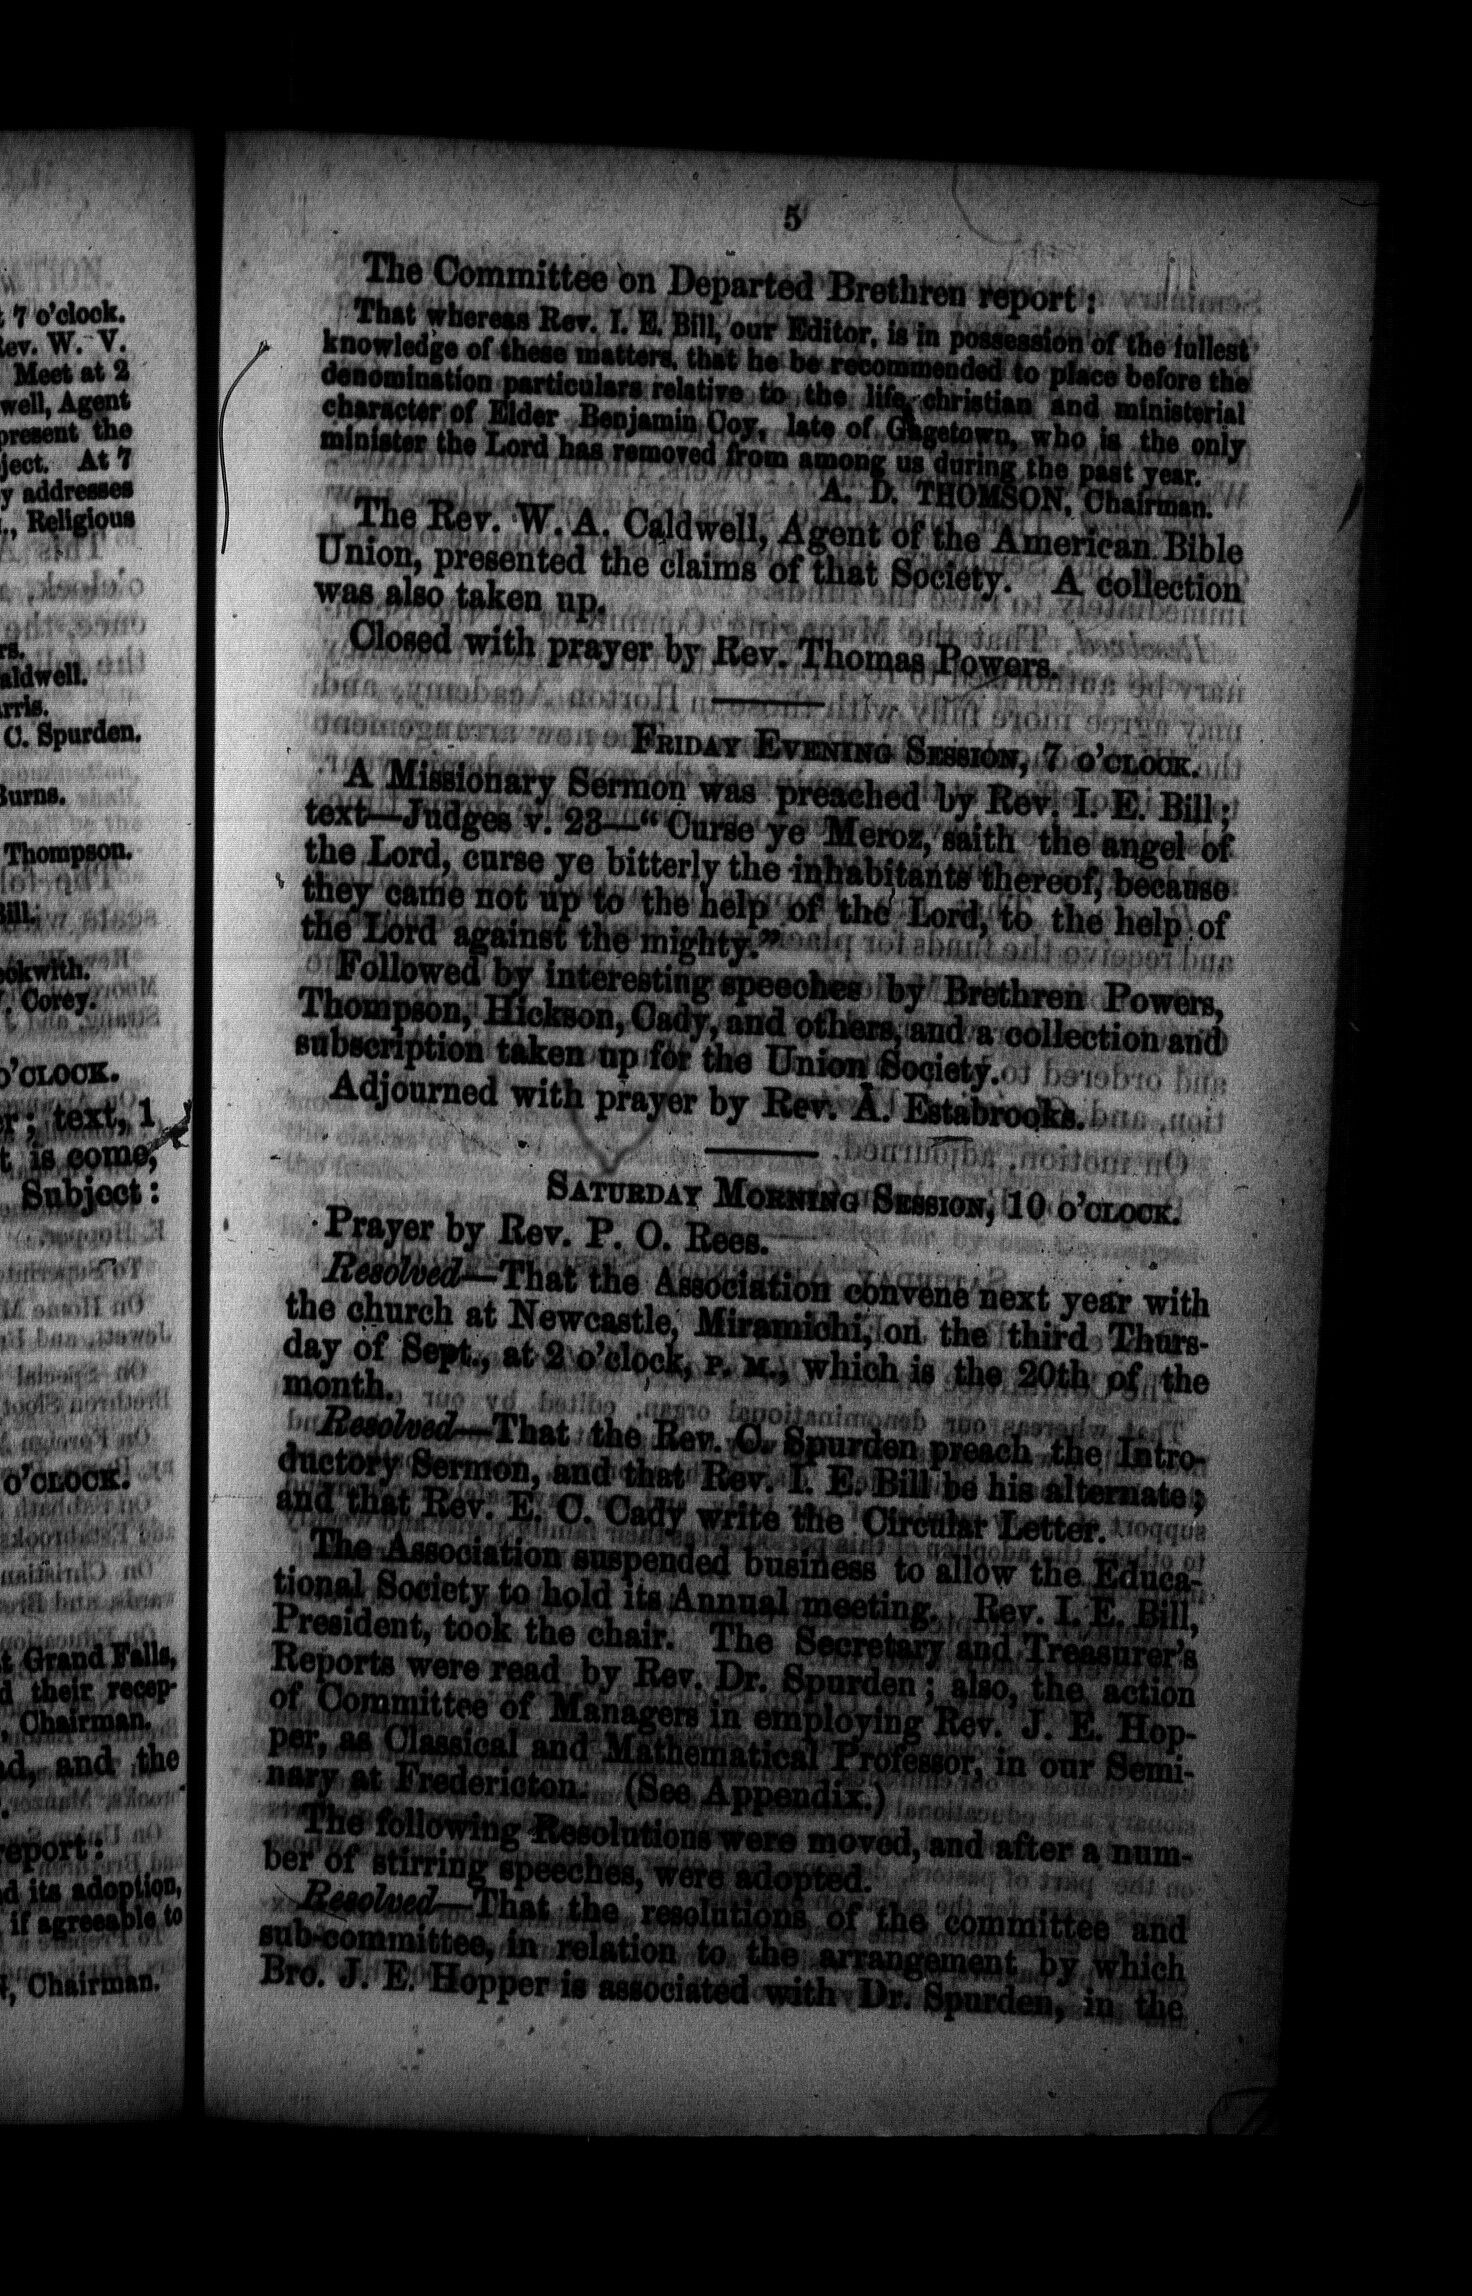 7 o'clock.
Rev. W. V.
Meet at 2
well, Agent
present the
ject. At 7
y addresses
Religious
rs.
aldwell.
arris.
C. Spurden.
Burns.
Thompson.
Bill.
eckwith.
Corey.
O'CLOCK.
er; text, 1
t is come,
Subject:
O'CLOCK.
t Grand Falls,
d their recep-
, Chairman.
ad, and the
report:
nd its adoption,
if agreeable to
N, Chairman.
5
The Committee on Departed Brethren report:
That whereas Rev. I. E. Bill, our Editor, is in possession of the fullest
knowledge of these matters, that he be recommended to place before the
denomination particulars relative to the life, christian and ministerial
character of Elder Benjamin Coy, late of Gagetown, who is the only
minister the Lord has removed from among us during the past year.
A. D. THOMSON, Chairman.
The Rev. W. A. Caldwell, Agent of the American Bible
Union, presented the claims of that Society. A collection
was also taken up.
Closed with prayer by Rev. Thomas Powers.
FRIDAY EVENING SESSION, 7 O'CLOCK.
A Missionary Sermon was preached by Rev. I. E. Bill;
text—Judges v. 23—“Curse ye Meroz, saith the angel of
the Lord, curse ye bitterly the inhabitants thereof, because
they came not up to the help of the Lord, to the help of
the Lord against the mighty.”
Followed by interesting speeches by Brethren Powers,
Thompson, Hickson, Cady, and others, and a collection and
subscription taken up for the Union Society.
Adjourned with prayer by Rev. A. Estabrooks.
SATURDAY MORNING SESSION, 10 O'CLOCK.
Prayer by Rev. P. O. Rees.
Resolved—That the Association convene next year with
the church at Newcastle, Miramichi, on the third Thurs-
day of Sept., at 2 o'clock, P. M., which is the 20th of the
month.
Resolved—That the Rev. C. Spurden preach the Intro-
ductory Sermon, and that Rev. I. E. Bill be his alternate;
and that Rev. E. C. Cady write the Circular Letter.
The Association suspended business to allow the Educa-
tional Society to hold its Annual meeting. Rev. I. E. Bill,
President, took the chair. The Secretary and Treasurer's
Reports were read by Rev. Dr. Spurden; also, the action
of Committee of Managers in employing Rev. J. E. Hop-
per, as Classical and Mathematical Professor, in our Semi-
nary at Fredericton. (See Appendix.)
The following Resolutions were moved, and after a num-
ber of stirring speeches, were adopted.
Resolved—That the resolutions of the committee and
sub-committee, in relation to the arrangement by which
Bro. J. E. Hopper is associated with Dr. Spurden, in the